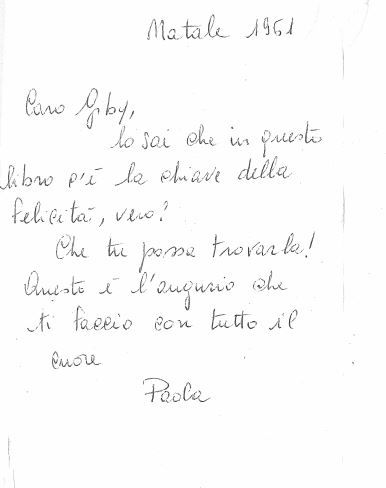 Natale 1961
Caro Giby,
lo sai che in questo
libro c'è la chiave della
felicità, vero?
Che tu possa trovarla!
Questo è l'augurio che
ti faccio con tutto il
cuore
Paola